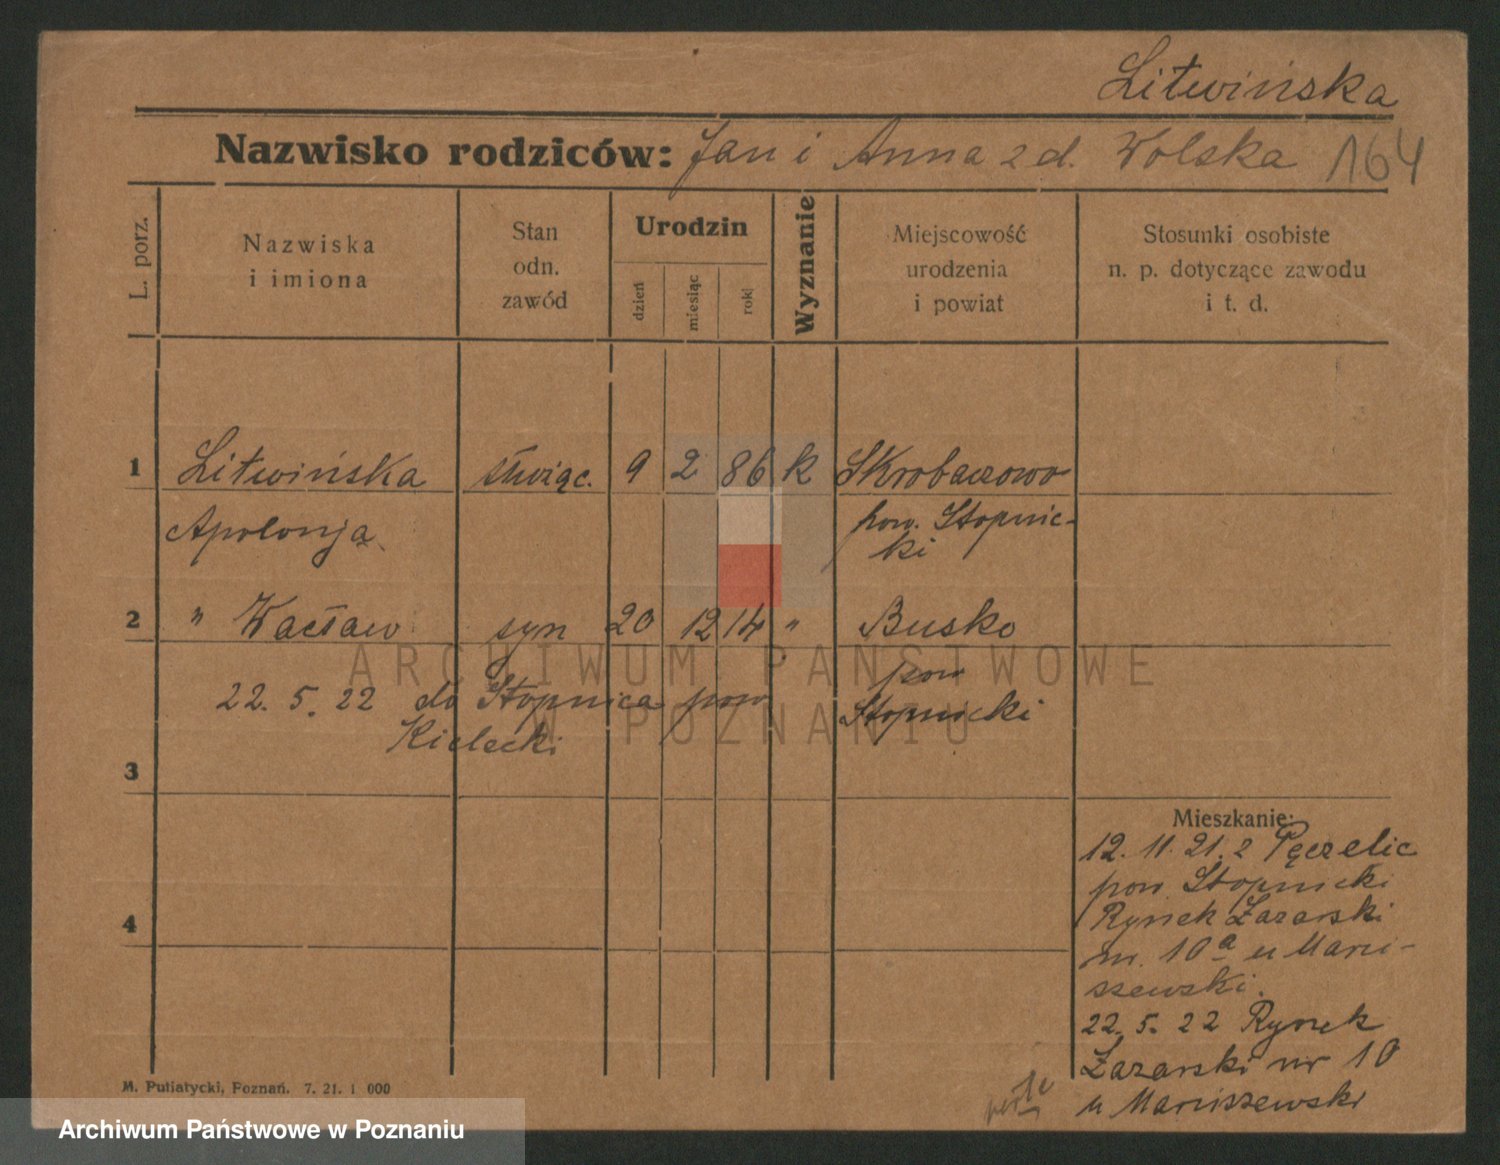 Litwińska
Nazwisko rodziców: Jan i Anna z d. Wolska 164
L. porz.
Nazwiska
i imiona
Stan
odn.
zawód
Urodzin
dzień
miesiąc
rok
Wyznanie
Miejscowość
urodzenia
i powiat
Stosunki osobiste
n. p. dotyczące zawodu
i t. d.
1 Litwińska służąc. 9 2 86 k Skrobaczowo
Apolonja pow. Stopnic-
ki
2 " Wacław syn 20 12 14 " Busko
pow
22. 5. 22 do Stopnica pow Stopnicki
Kielecki
3
4
Mieszkanie:
12. 11. 21. z Pęczelic
pow. Stopnicki
Rynek Łazarski
nr. 10a u Marci-
szewski.
22. 5. 22 Rynek
Łazarski nr 10
u Marciszewski
M. Putiatycki, Poznań. 7. 21. 1 000
ARCHIWUM PAŃSTWOWE
W POZNANIU
Archiwum Państwowe w Poznaniu